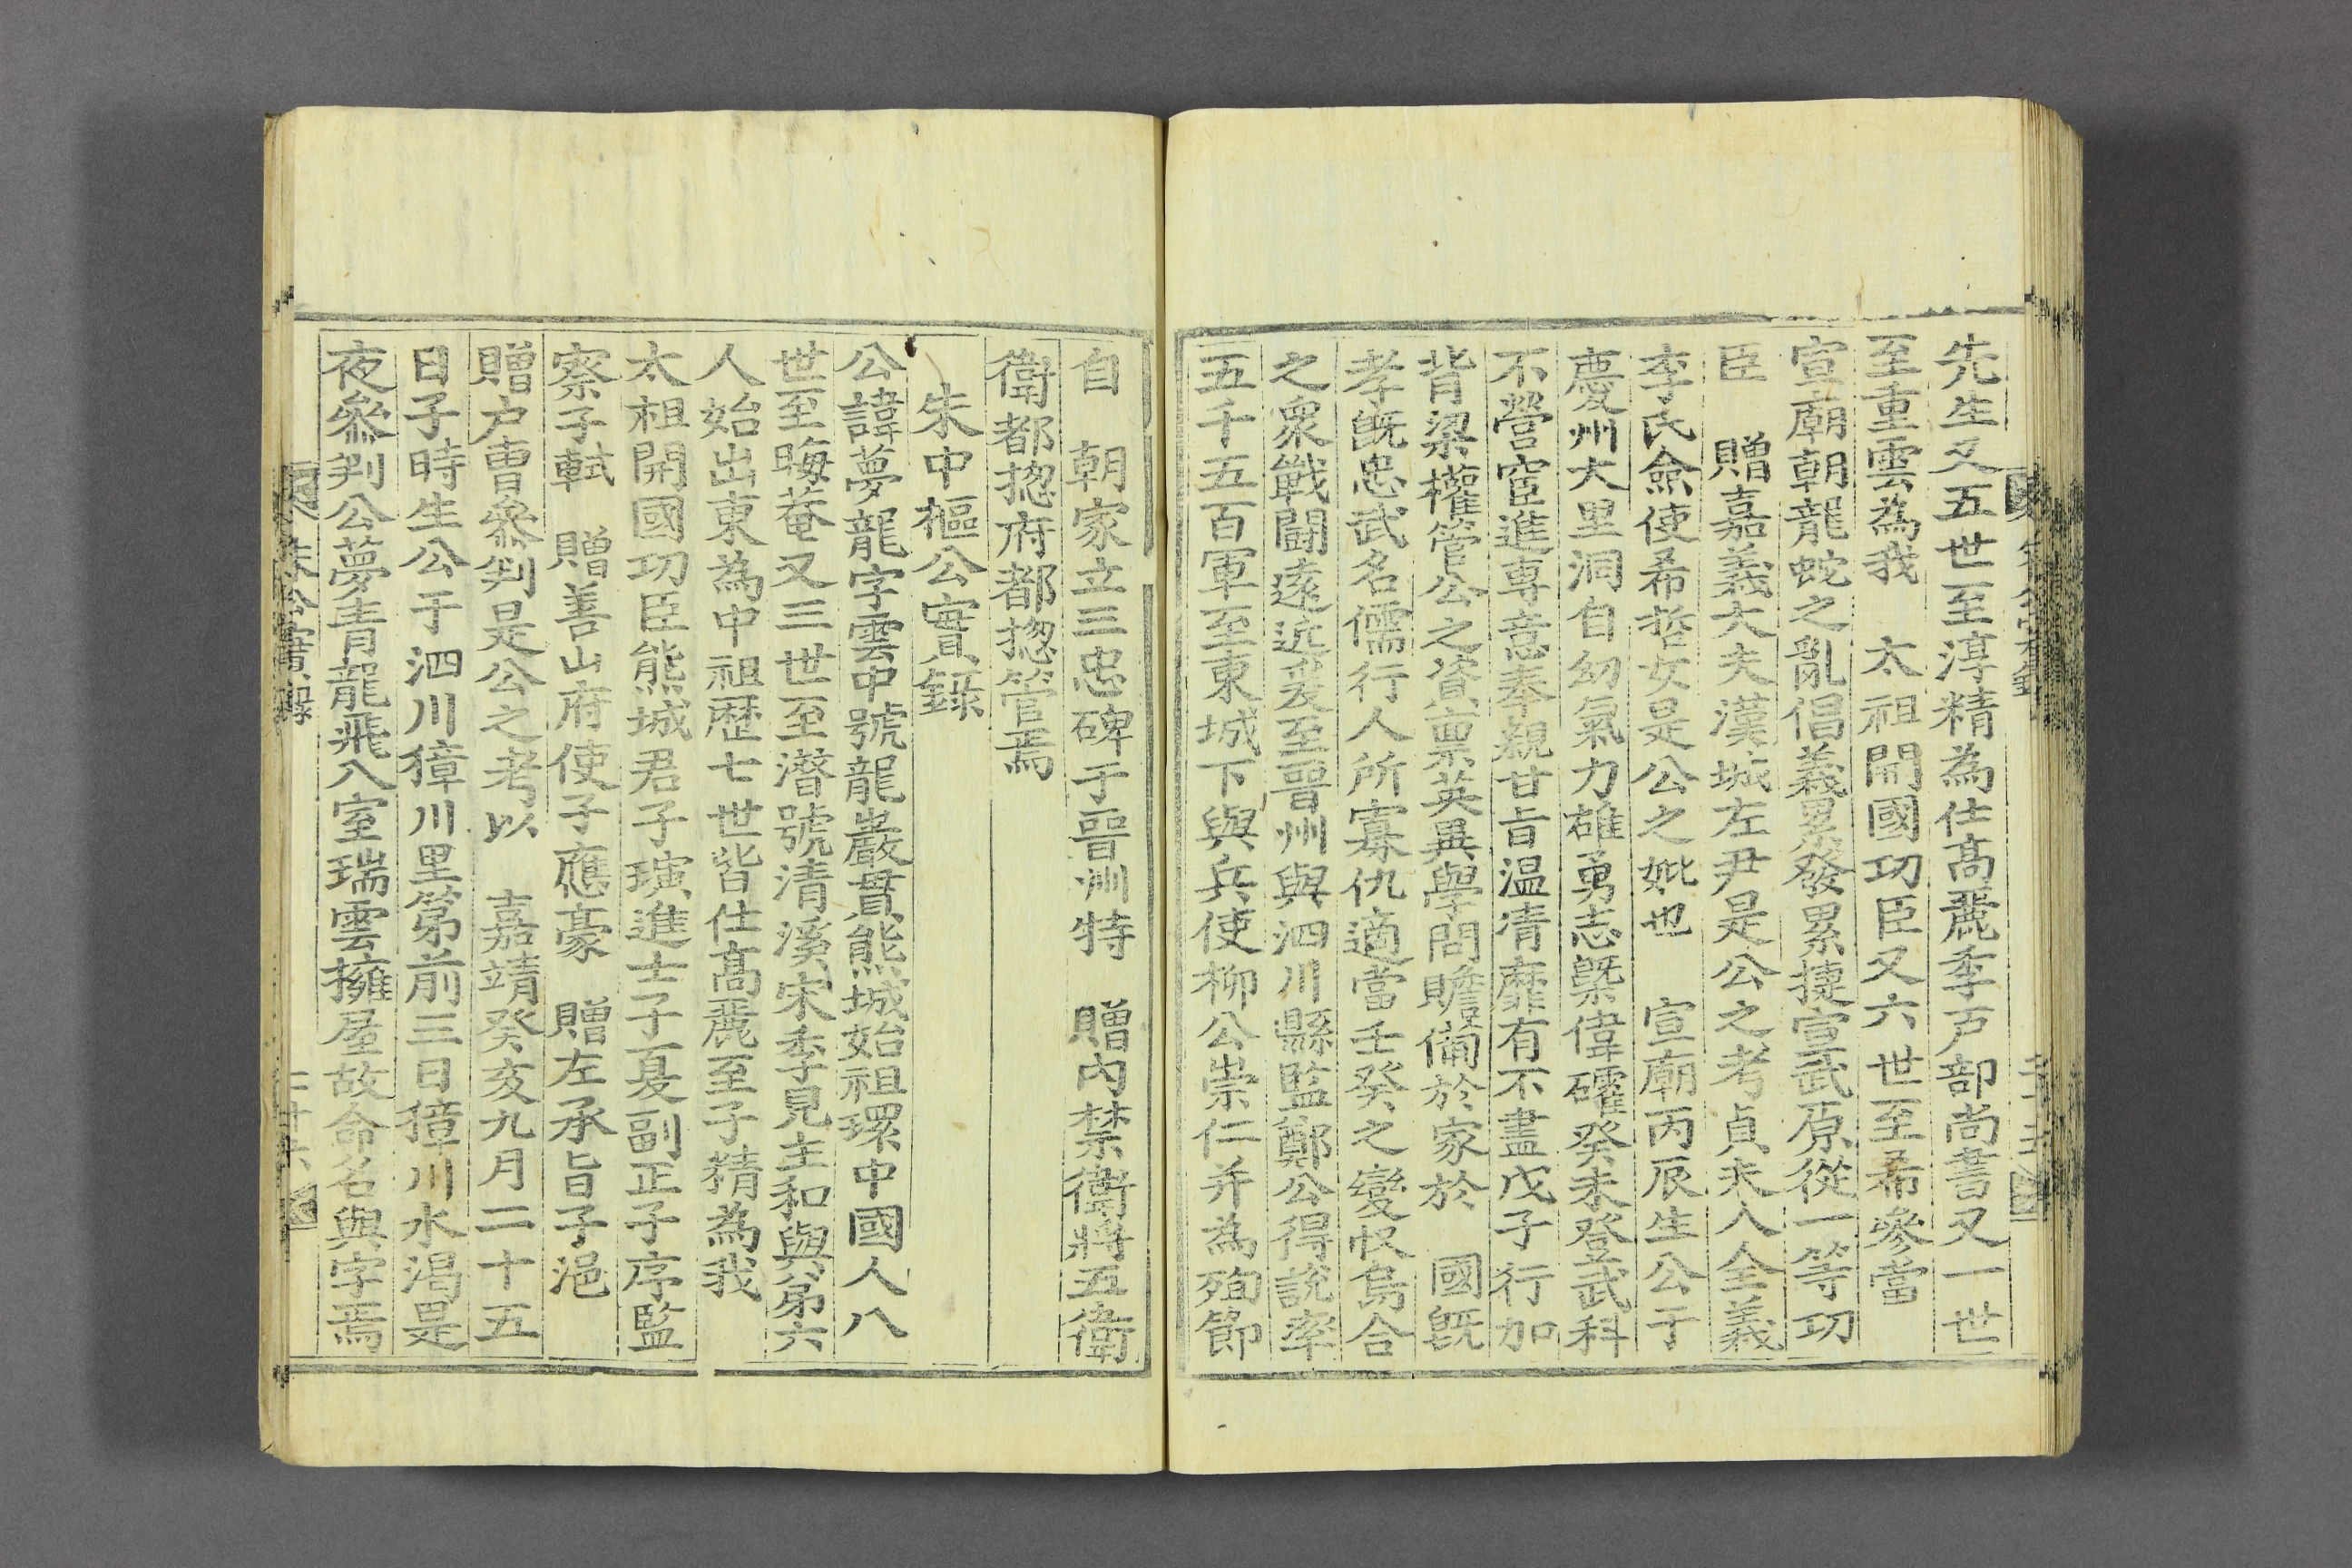 先生又五世至淳精為仕高麗季戶部尚書又一世
至重雲為我　太祖開國功臣又六世至希參當
宣廟朝龍蛇之亂倡義累發累捷宣武原從一等功
臣　贈嘉義大夫漢城左尹是公之考貞夫人全義
李氏僉使希哲女是公之妣也　宣廟丙辰生公于
慶州大里洞自幼氣力雄勇志槩偉礭癸未登武科
不營宦進專意奉親甘旨温凊靡有不盡戊子行加
背梁權管公之資禀英異學問贍備於家於　國旣
孝旣忠武名儒行人所寡仇適當壬癸之變収烏合
之衆戰鬪遠近爰至晋州與泗川縣監鄭公得說率
五千五百軍至東城下與兵使柳公崇仁并為殉節
自　朝家立三忠碑于晋州特　贈內禁衛將五衛
衛都摠府都摠管焉
朱中樞公實錄
公諱夢龍字雲中號龍巖貫熊城始祖環中國人八
世至晦菴又三世至潛號清溪宋季見主和與第六
人始出東為中祖歷七世皆仕高麗至子精為我
太祖開國功臣熊城君子璜進士子夏副正子序監
察子軾　贈善山府使子應豪　贈左承旨子浥
贈户曹參判是公之考以　嘉靖癸亥九月二十五
日子時生公于泗川獐川里第前三日獐川水渴是
夜參判公夢青龍飛入室瑞雲擁屋故命名與字焉
朱公實錄
二十六